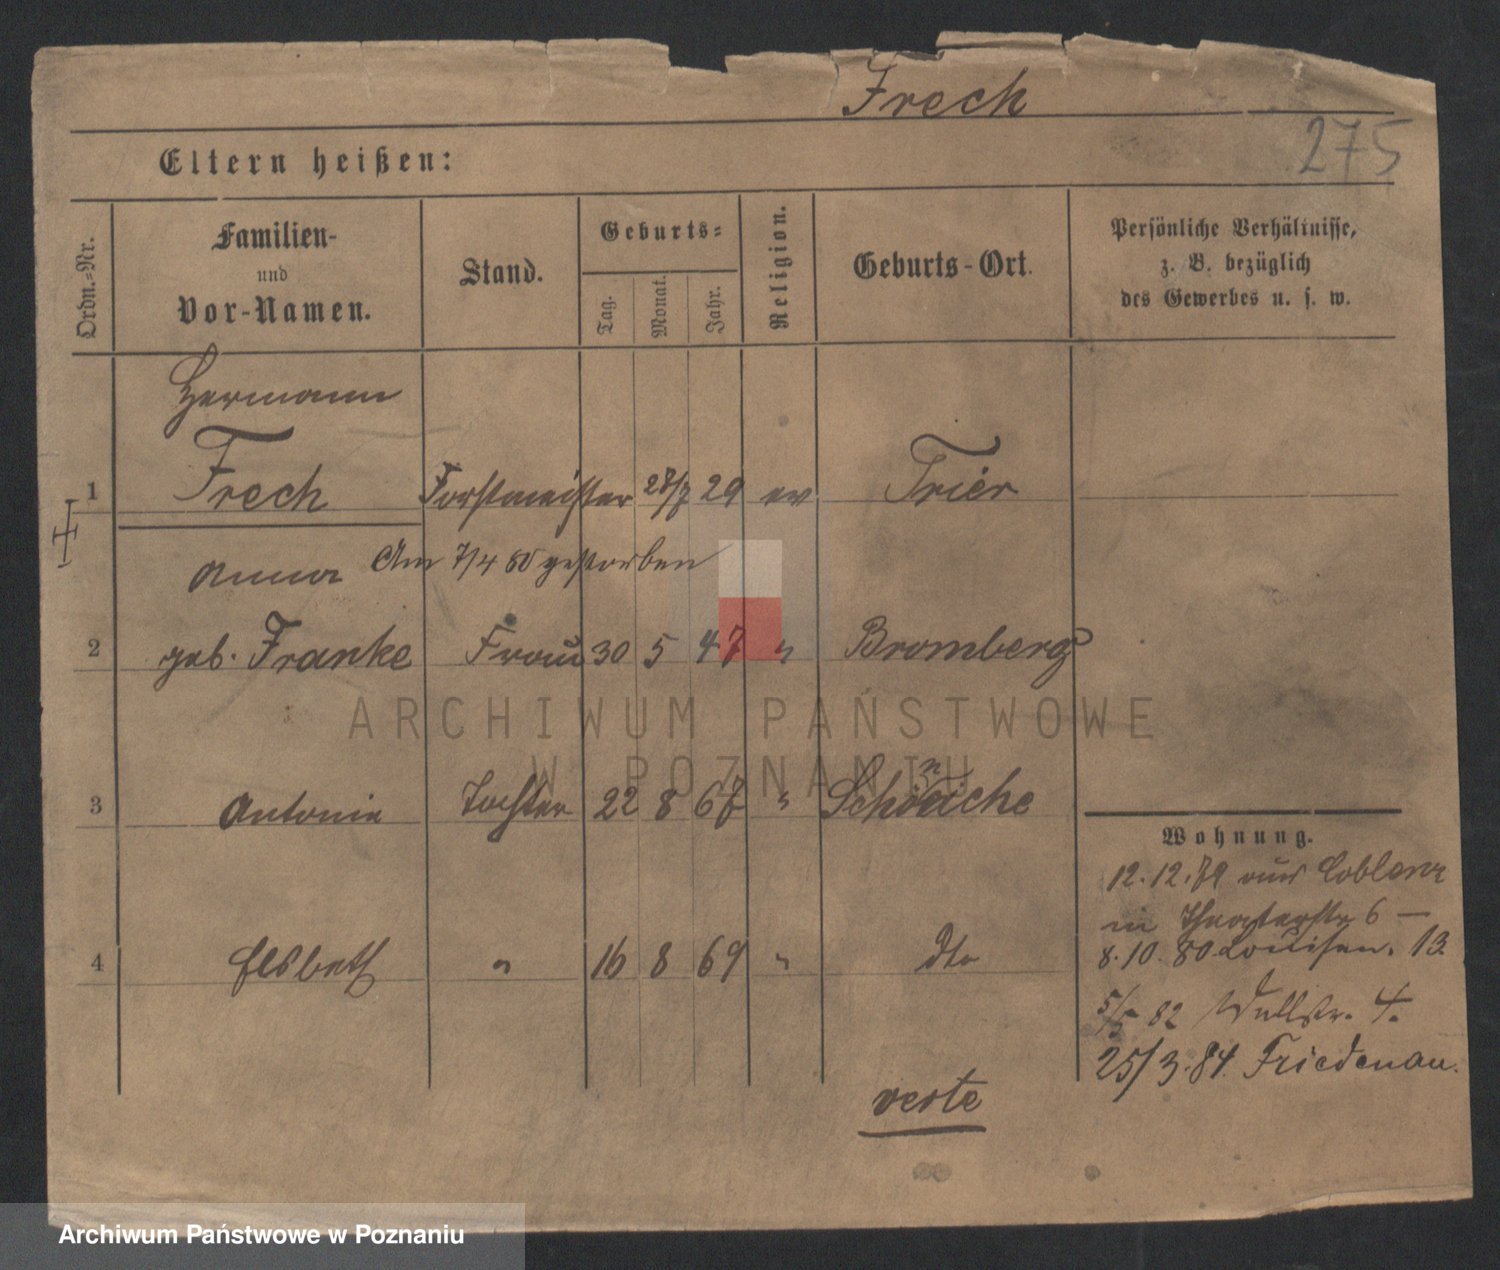 Frech
275
Eltern heißen:
Ordn.-Nr.
Familien-
und
Vor-Namen.
Stand.
Geburts-
Tag.
Monat.
Jahr.
Religion.
Geburts-Ort.
Persönliche Verhältnisse,
z. B. bezüglich
des Gewerbes u. s. w.
Hermann
1 Frech Forstmeister 28/7 29 ev Trier
Am 7/4 80 gestorben
Anna
2 geb. Franke Frau 30 5 47 " Bromberg
ARCHIWUM PAŃSTWOWE
W POZNANIU
3 Antonie Tochter 22 8 67 "
Wohnung.
12.12.79 aus Coblenz
in Theaterstr 6 —
8.10.80 Louisen. 13
4 Elsbeth " 16 8 69 " dto
5/5 82 Wallstr. 4.
25/3.84. Friedenau.
verte
Archiwum Państwowe w Poznaniu